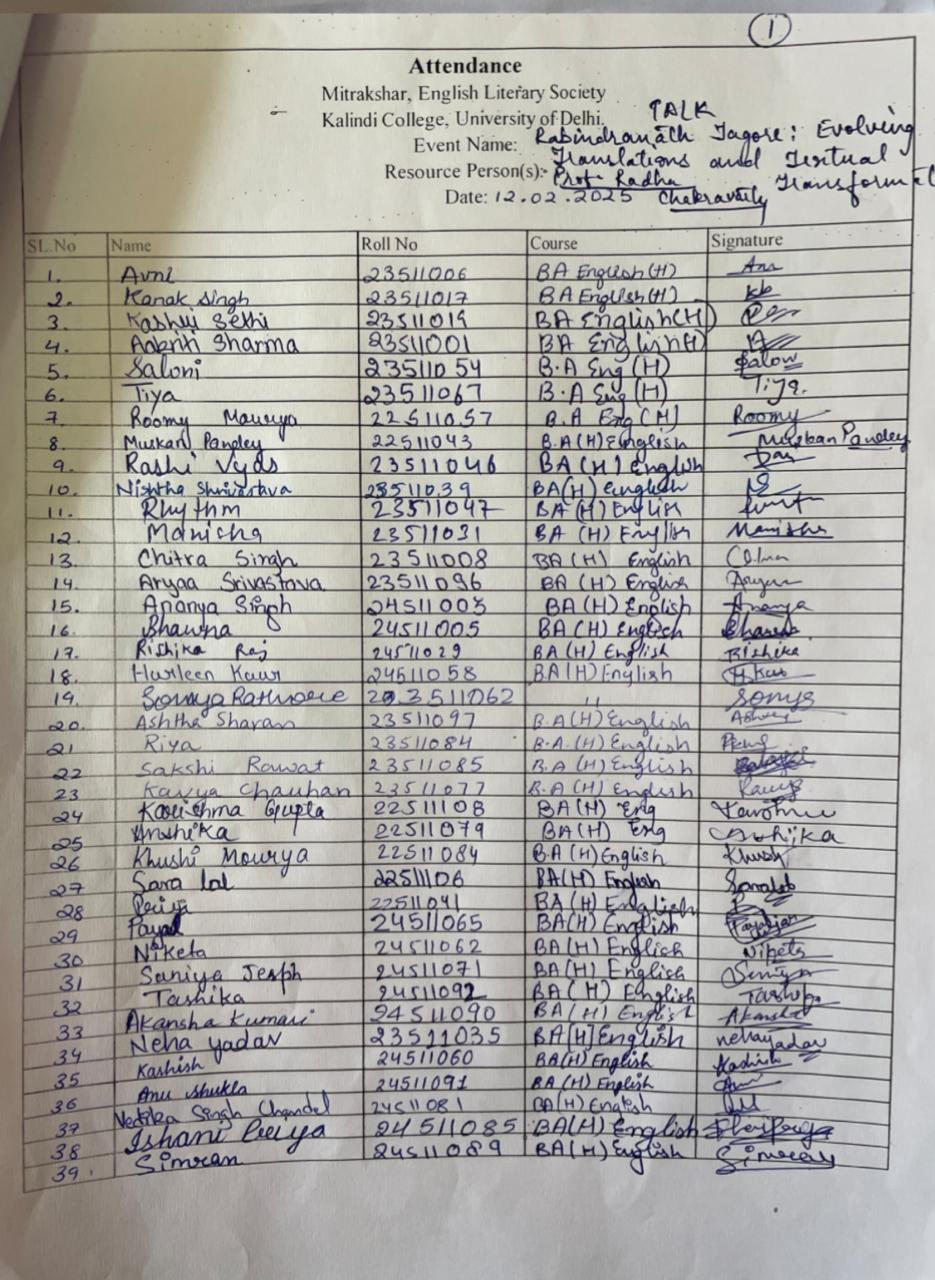 1
Attendance
Mitrakshar, English Literary Society
Kalindi College, University of Delhi. TALK
Event Name: Rabindranath Tagore: Evolving
Translations and Textual
Transformat
Resource Person(s):- Prof. Radha
Date: 12.02.2025 Chakravarty
SL.No Name Roll No Course Signature
1. Avni 23511006 BA English(H)
2. Kanak Singh 23511017 BA English(H)
3. Kashvi Sethi 23511019 BA English(H)
4. Aakriti Sharma 23511001 BA English(H)
5. Saloni 23511054 B.A Eng (H) Saloni
6. Tiya 23511067 B.A Eng (H) Tiya.
7. Roomy Maurya 22511057 B.A Eng (H) Roomy
8. Muskan Pandey 22511043 B.A(H) English Muskan Pandey
9. Rashi Vyas 23511046 BA (H) English
10. Nishtha Shrivastava 23511039 BA(H) English
11. Rhythm 23511047 BA (H) English
12. Manisha 23511031 BA (H) English Manisha
13. Chitra Singh 23511008 BA (H) English
14. Aryaa Srivastava 23511096 BA (H) English
15. Ananya Singh 24511003 BA (H) English Ananya
16. Bhawna 24511005 BA (H) English
17. Rishika Raj 24511029 BA (H) English Rishika
18. Harleen Kaur 24511058 BA (H) English
19. Somya Rathore 23511062 "
20. Ashtha Sharan 23511097 B.A(H) English
21 Riya 23511084 B.A.(H) English
22 Sakshi Rawat 23511085 B.A (H) English
23 Kavya Chauhan 23511077 B.A (H) English
24 Karishma Gupta 22511108 BA (H) Eng
25 Anshika 22511079 BA(H) Eng
26 Khushi Mourya 22511084 B.A (H) English Khushi
27 Sara lal 22511106 BA(H) English Saralal
28 Priya 22511041 BA (H) English
29 Payal 24511065 BA(H) English
30 Niketa 24511062 BA (H) English Niketa
31 Saniya Jesph 24511071 BA (H) English Saniya
32 Tashika 24511092 BA (H) English Tashika
33 Akansha Kumari 24511090 BA (H) English Akansha
34 Neha yadav 23511035 BA(H) English nehayadav
35 Kashish 24511060 BA(H) English Kashish
36 Anu shukla 24511091 BA (H) English
37 Singh Chandel 24511081 BA(H) English
38 Ishani Priya 24511085 BA(H) English
39. Simran 24511089 BA(H) English Simran